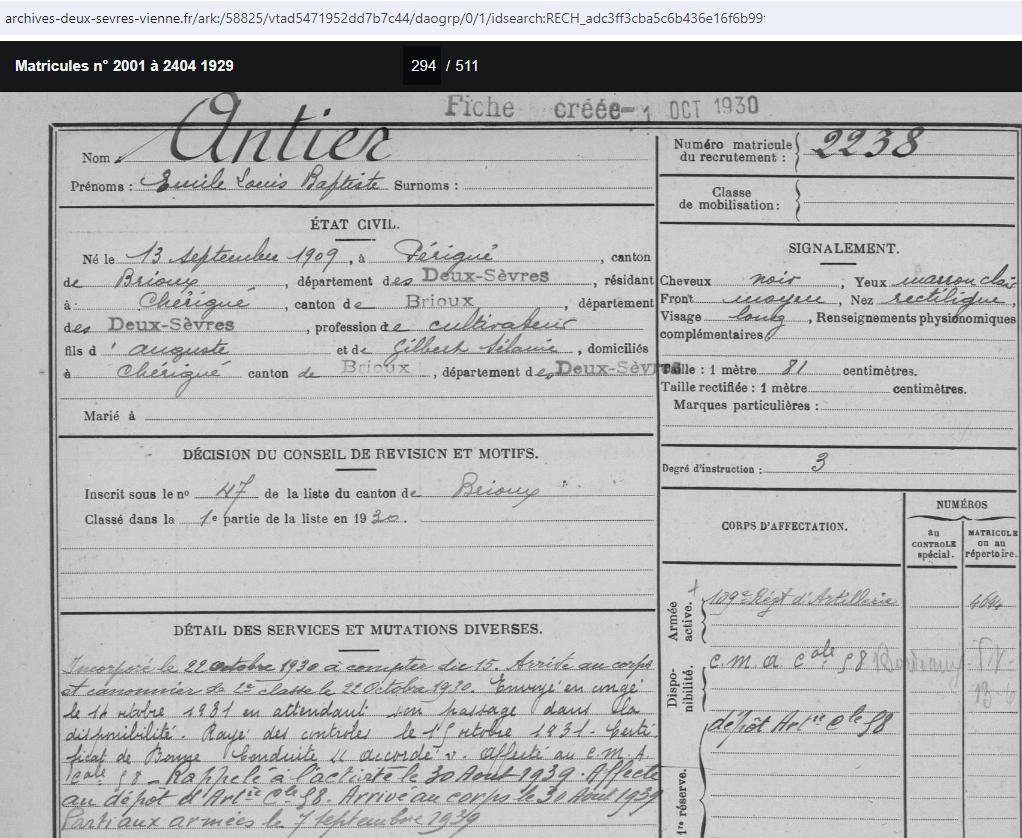 archives-deux-sevres-vienne.fr/ark:/58825/vtad5471952dd7b7c44/daogrp/0/1/idsearch:RECH_adc3ff3cba5c6b436e16f6b99
Matricules n° 2001 à 2404 1929
294 / 511
Fiche créée - 1 OCT 1930
Nom Antier
Prénoms : Emile Louis Baptiste Surnoms :
Numéro matricule du recrutement : 2238
Classe de mobilisation :
ÉTAT CIVIL.
Né le 13 septembre 1909, à Périgné, canton
de Brioux, département des Deux-Sèvres, résidant
à Chérigné, canton de Brioux, département
des Deux-Sèvres, profession de cultivateur
fils d'auguste et de Gilbert, domiciliés
à Chérigné canton de Brioux, département des Deux-Sèvres
Marié à
SIGNALEMENT.
Cheveux noir, Yeux marron clair
Front moyen, Nez rectiligne,
Visage long, Renseignements physionomiques
complémentaires
Taille : 1 mètre 81 centimètres.
Taille rectifiée : 1 mètre centimètres.
Marques particulières :
Degré d'instruction : 3
DÉCISION DU CONSEIL DE REVISION ET MOTIFS.
Inscrit sous le nº 47 de la liste du canton de Brioux
Classé dans la 1e partie de la liste en 1930.
CORPS D'AFFECTATION.
NUMÉROS
au CONTROLE spécial.
MATRICULE ou au répertoire.
Armée active.
109e Régt d'Artillerie
Dispo-
nibilité.
C.M.A. Cole 98
1re réserve.
dépôt Artie Cle 98
DÉTAIL DES SERVICES ET MUTATIONS DIVERSES.
Incorporé le 22 octobre 1930 à compter du 15. Arrivé au corps
et canonnier de 2e classe le 22 Octobre 1930. Envoyé en congé
le octobre 1931 en attendant son passage dans la
disponibilité. Rayé des contrôles le octobre 1931. Certi
ficat de Bonne Conduite "accordé". Affecté au C.M.A.
Cole 98 - Rappelé à l'activité le 30 Aout 1939. Affecté
au dépôt d'Artie Cle 98. Arrivé au corps le 30 Août 1939
Parti aux armées le 7 septembre 1939